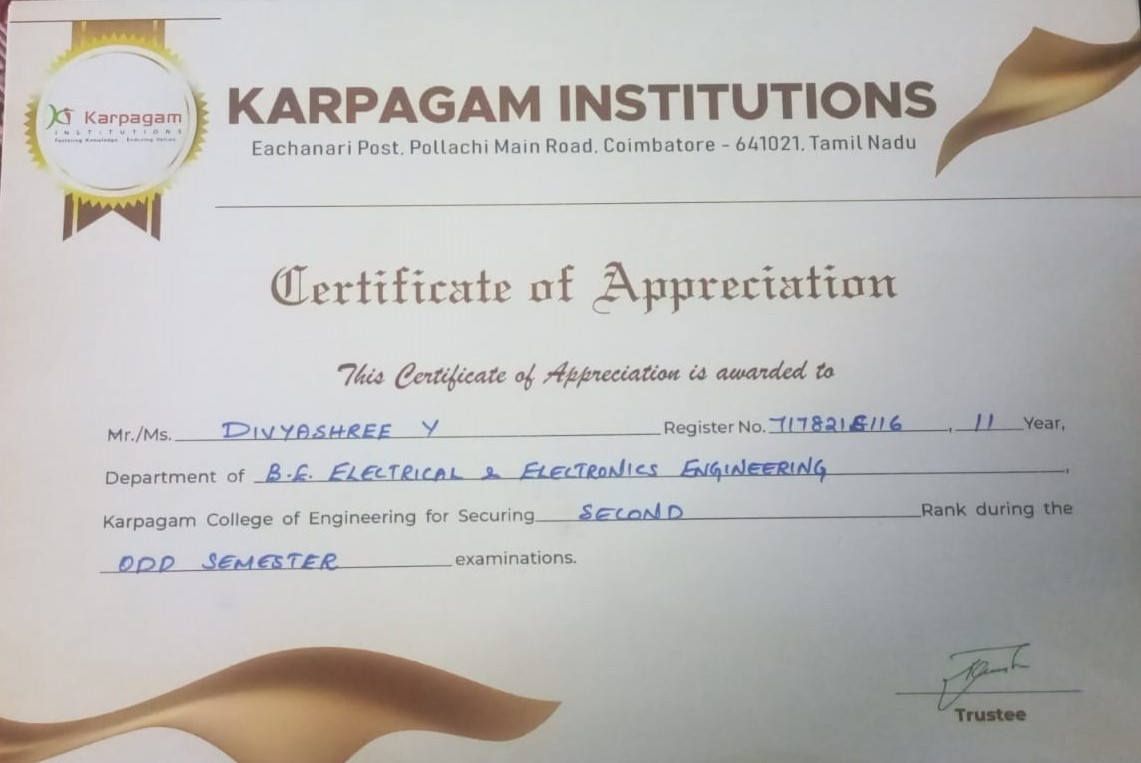 Karpagam
INSTITUTIONS
Fostering Knowledge Enduring Values
KARPAGAM INSTITUTIONS
Eachanari Post, Pollachi Main Road, Coimbatore - 641021. Tamil Nadu
Certificate of Appreciation
This Certificate of Appreciation is awarded to
Mr./Ms. DIVYASHREE Y Register No. , 11 Year,
Department of B.E. ELECTRICAL & ELECTRONICS ENGINEERING,
Karpagam College of Engineering for Securing SECOND Rank during the
ODD SEMESTER examinations.
Trustee